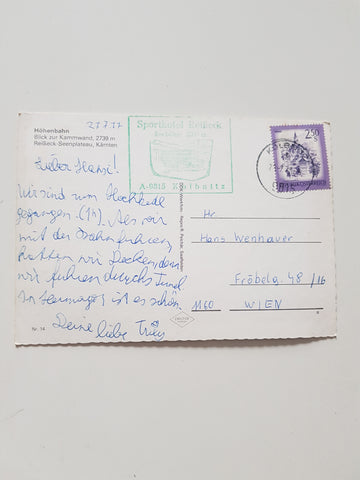 27.7.77
Höhenbahn
Blick zur Kammwand, 2739 m
Reißeck-Seenplateau, Kärnten
Sporthotel Reißeck
A-9815 Kolbnitz
2.50
Lieber Hansi!
Wir sind zum Hochkedl
gegangen. (1h). Als wir
mit der Bahn fuhren,
hatten wir Decken, denn
wir fuhren durchs Tunel
In Hermagor ist es schön.
Deine liebe
Hr.
Hans Wenhauer
Fröbelg. 48/16
1160 WIEN
Nr. 14